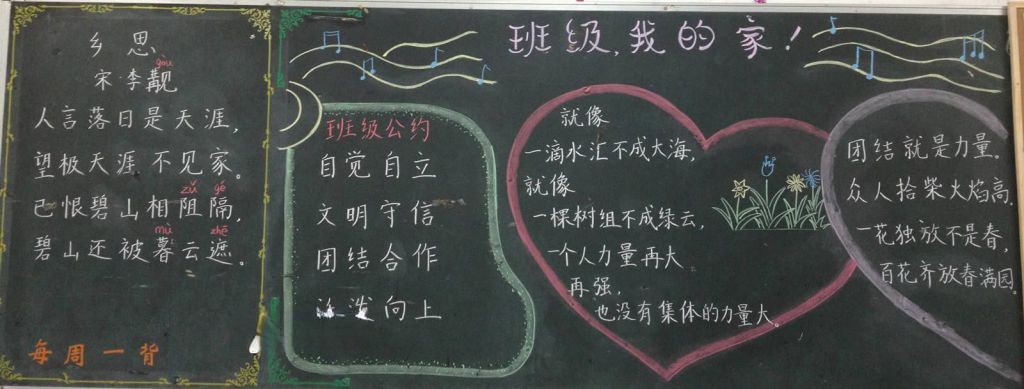 乡思
gòu
宋·李觏
人言落日是天涯,
望极天涯不见家。
zǔ gé
已恨碧山相阻隔,
mù zhē
碧山还被暮云遮。
每周一背
班级,我的家!
班级公约
自觉自立
文明守信
团结合作
泼向上
就像
一滴水汇不成大海,
就像
一棵树组不成绿云,
一个人力量再大
再强,
也没有集体的力量大。
团结就是力量。
众人拾柴火焰高,
一花独放不是春,
百花齐放春满园。